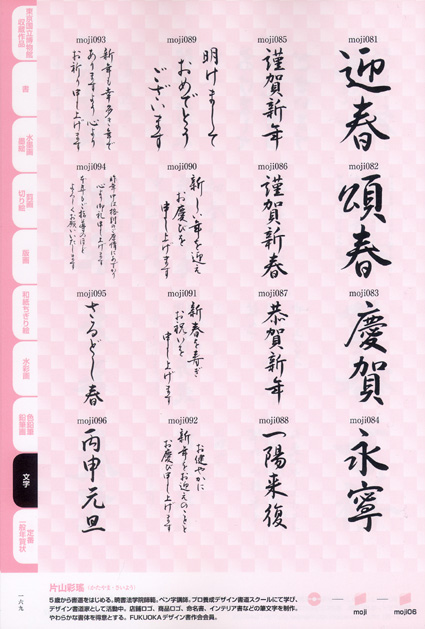 moji081
迎春
moji082
頌春
moji083
慶賀
moji084
永寧
moji085
謹賀新年
moji086
謹賀新春
moji087
恭賀新年
moji088
一陽来復
moji089
明けまして
おめでとう
ございます
moji090
新しい年を迎え
お慶びを
申し上げます
moji091
新春を寿ぎ
お祝いを
申し上げます
moji092
お健やかに
新年をお迎えのことと
お慶び申し上げます
moji093
新年も幸多き年で
ありますよう心より
お祈り申し上げます
moji094
昨年中は格別のご厚情にあずかり
心より御礼申し上げます
本年もご指導のほど
よろしくお願いいたします
moji095
さるどし春
moji096
丙申元旦
東京国立博物館
収蔵作品
書
水墨画
墨絵
切り絵
版画
和紙ちぎり絵
水彩画
色鉛筆
鉛筆画
文字
定番
一般年賀状
一六九
片山彩瑤(かたやま・さいよう)
5歳から書道をはじめる。明書法学院師範。ペン字講師。プロ養成デザイン書道スクールにて学び、
デザイン書道家として活動中。店舗ロゴ、商品ロゴ、命名書、インテリア書などの筆文字を制作。
やわらかな書体を得意とする。FUKUOKAデザイン書作会会員。
moji
moji06